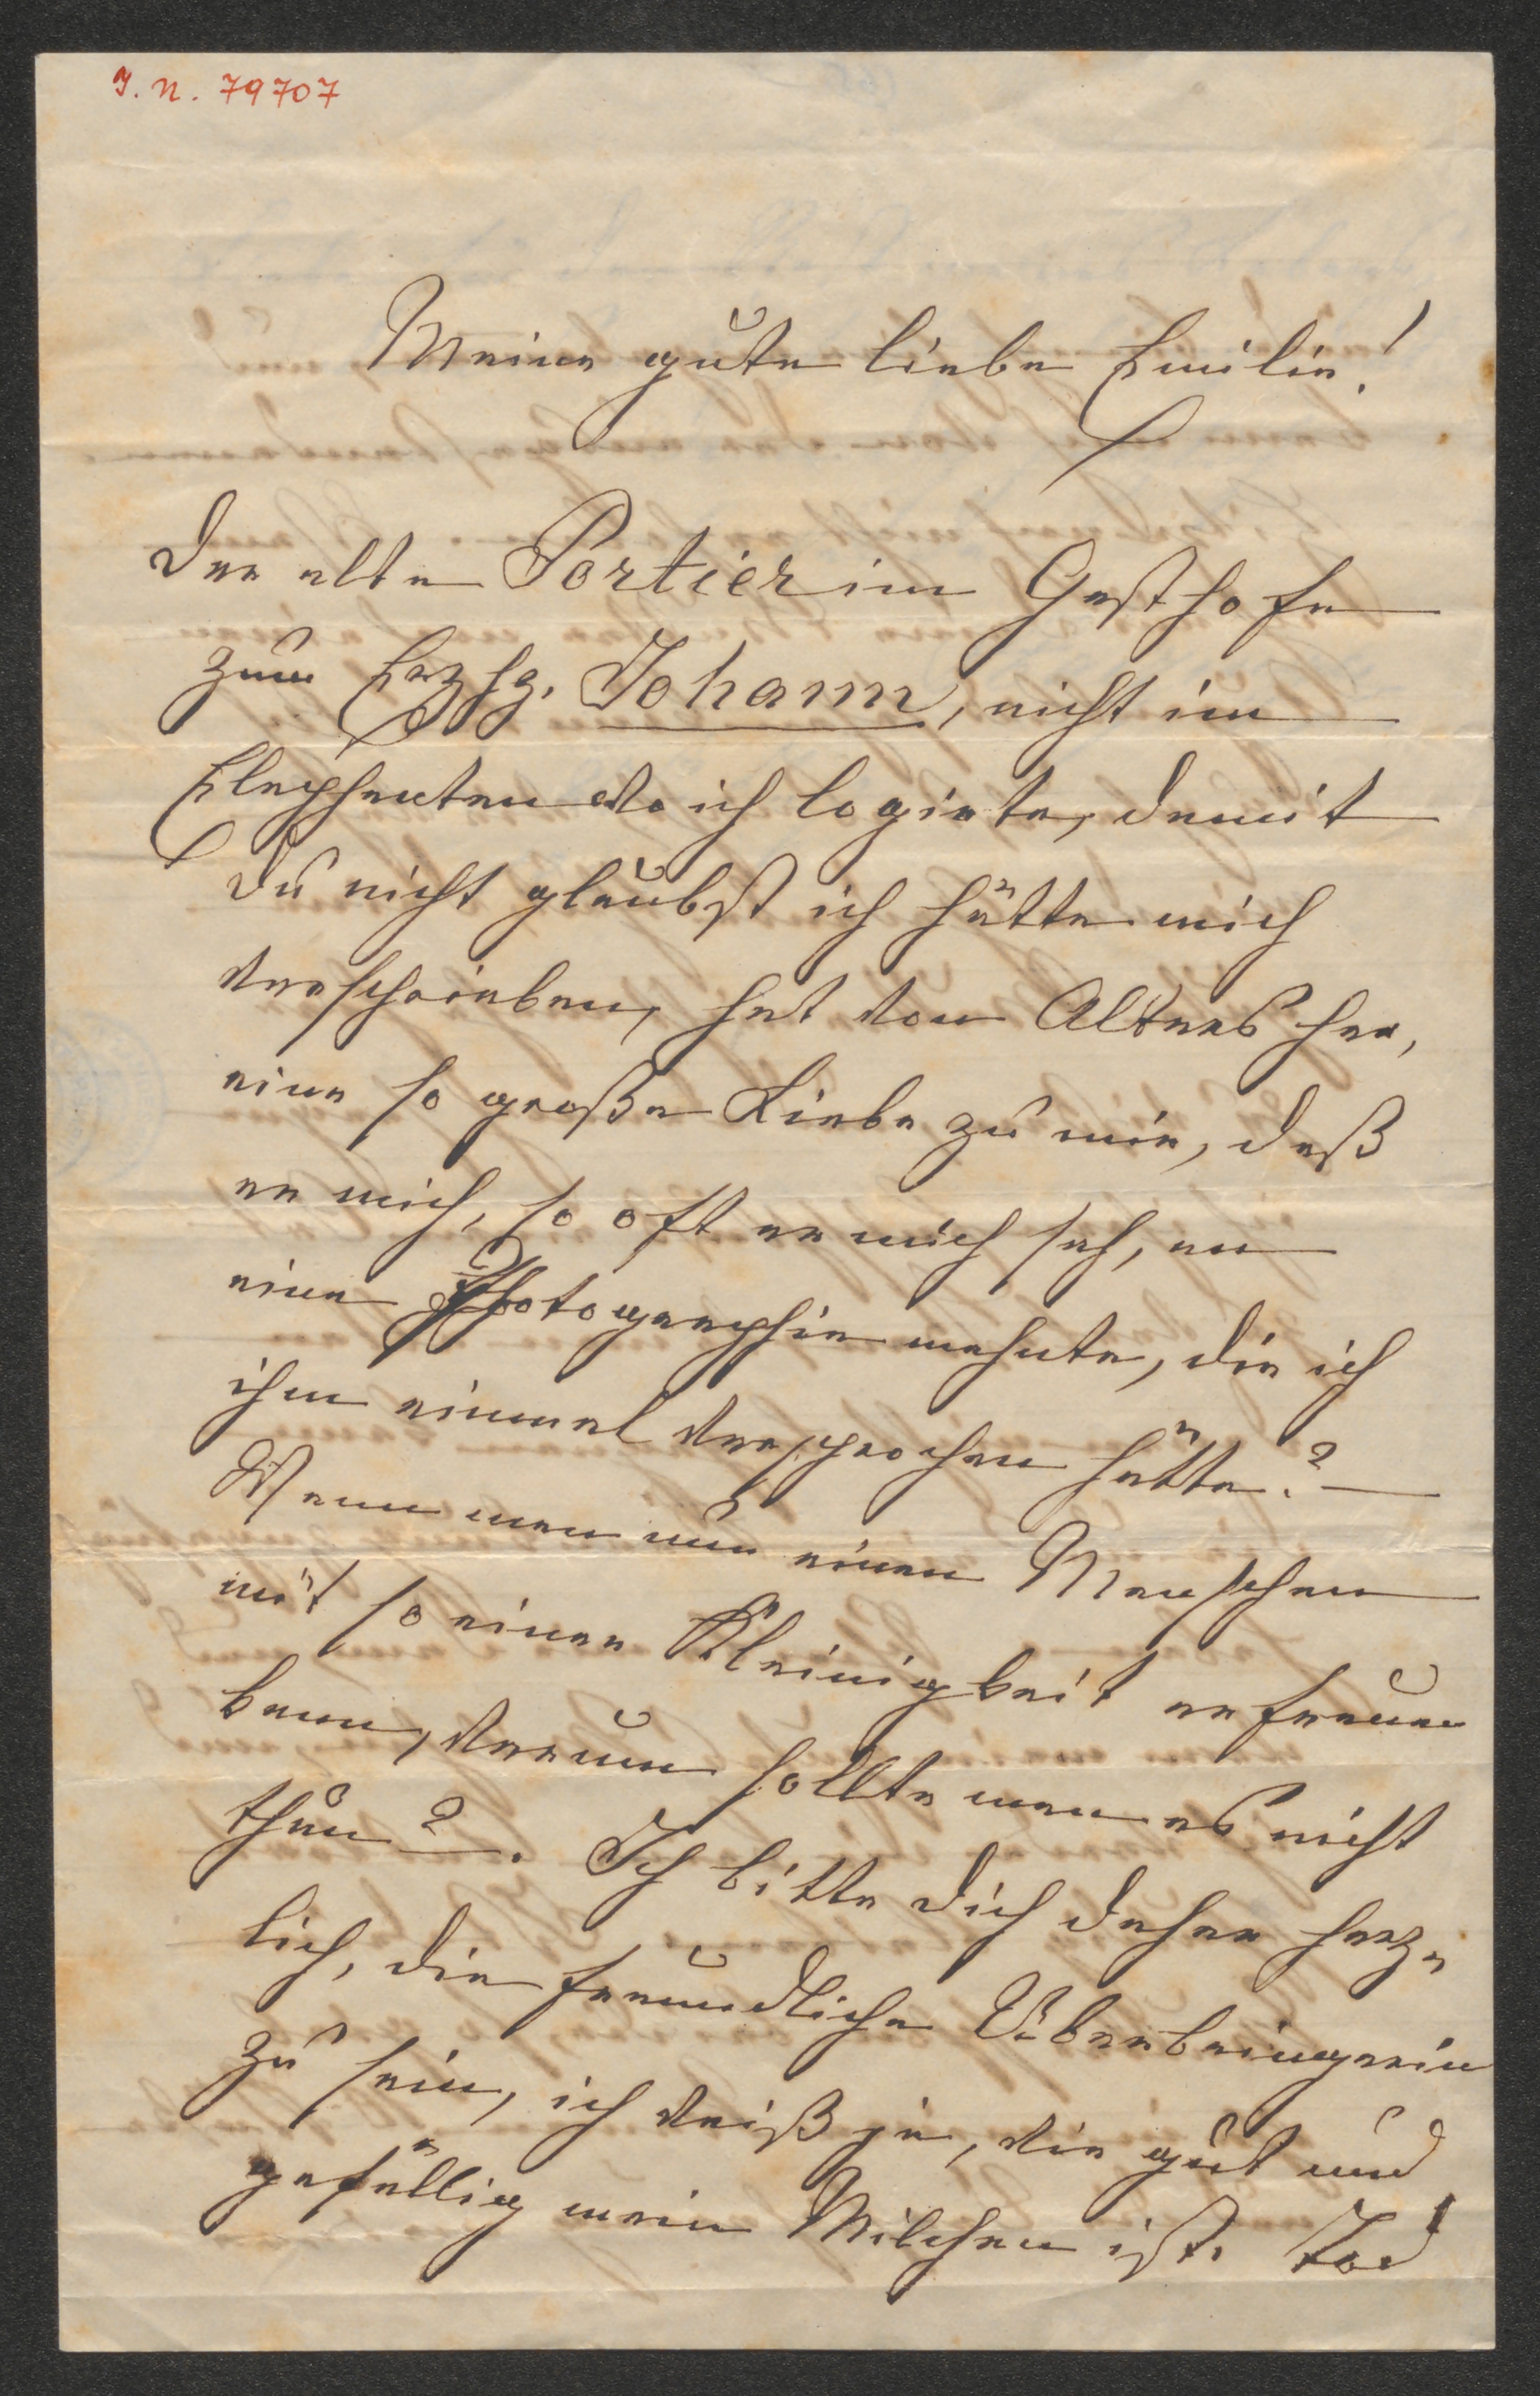 J. N. 79707
Meine gute liebe Emilie!
Der alte Portier im Gasthofe
zum Erzhg. Johann, nicht im
Elephanten wo ich logirte, damit
Du nicht glaubst ich hätte mich
verschrieben, hat von Alters her,
eine so große Liebe zu mir, daß
er mich, so oft er mich sah, an
eine Photographie mahnte, die ich
ihm einmal versprochen hätte.?
Wenn man nun einen Menschen
mit so einer Kleinigkeit erfreuen
kann, warum sollte man es nicht
thun?. Ich bitte Dich daher herz-
lich, die freundliche Überbringerin
zu sein, ich weiß ja, wie gut und
gefällig mein Milchen ist. Tod